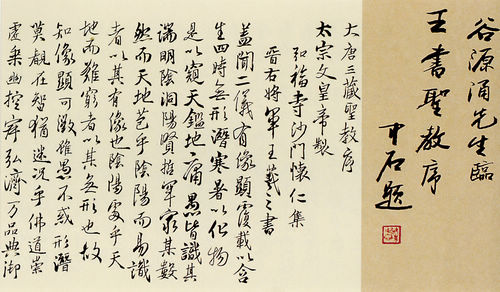 谷源涌先生臨
王書聖教序
中石題
大唐三藏聖教序
太宗文皇帝製
弘福寺沙門懷仁集
晉右將軍王羲之書
蓋聞二儀有像顯覆載以含
生四時無形潛寒暑以化物
是以窺天鑑地庸愚皆識其
端明陰洞陽賢哲罕窮其數
然而天地苞乎陰陽而易識
者以其有像也陰陽處乎天
地而難窮者以其無形也故
知像顯可徵雖愚不惑形潛
莫覩在智猶迷況乎佛道崇
虛乘幽控寂弘濟万品典御